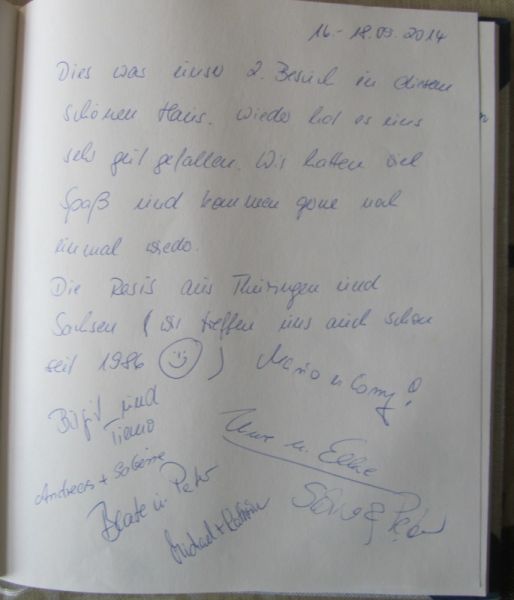 16.-18.09.2014
Dies war unser 2. Besuch in diesem
schönen Haus. Wieder hat es uns
sehr gut gefallen. Wir hatten viel
Spaß und kommen gerne noch
einmal wieder.
Die aus Thüringen und
Sachsen (wir treffen uns auch schon
seit 1986 ☺)
Mario u. Conny
Birgit und
Tiemo
Uwe u. Elke
Andreas + Sabine
Beate u. Peter
Michael +
Peter